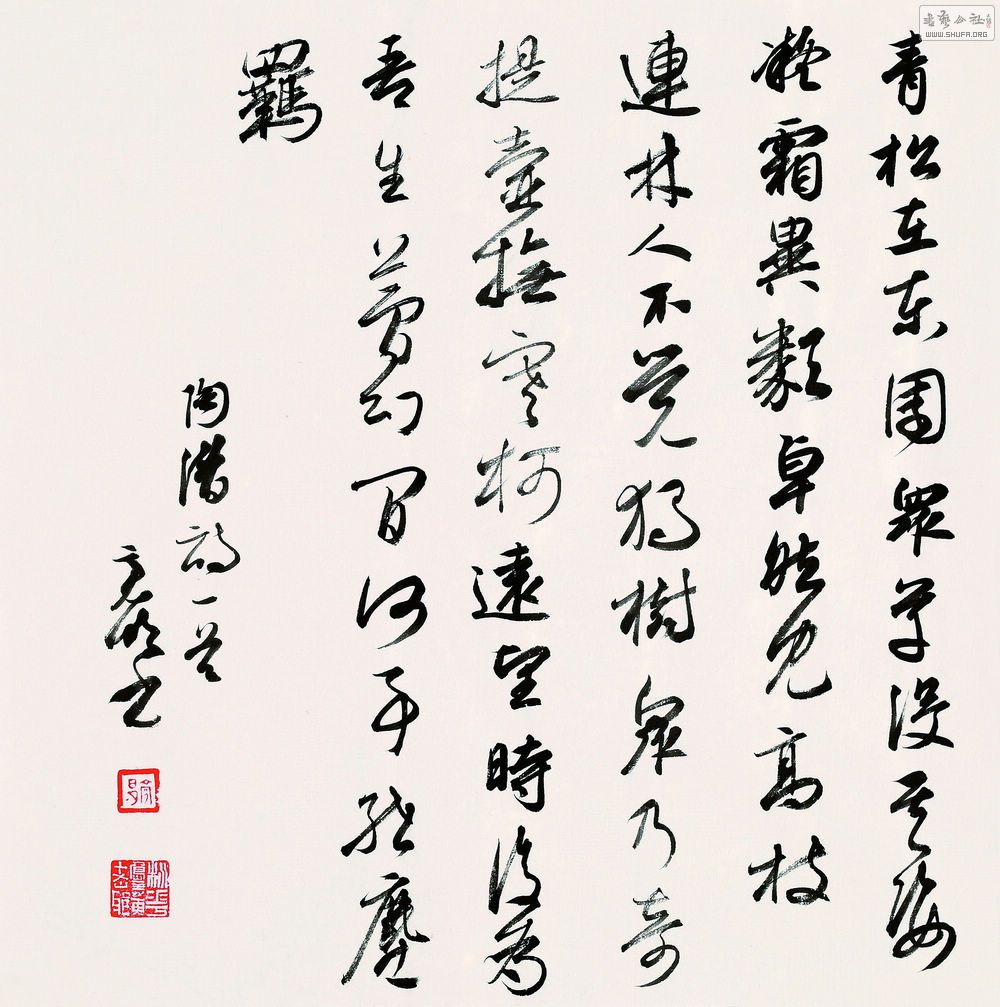 青松在東園眾草没其姿
凝霜異類卓然見高枝
連林人不覺獨樹眾乃奇
提壺撫寒柯遠望時復為
吾生夢幻間何事紲塵
羈
陶潜詩一首
书
書藝公社
WWW.SHUFA.ORG